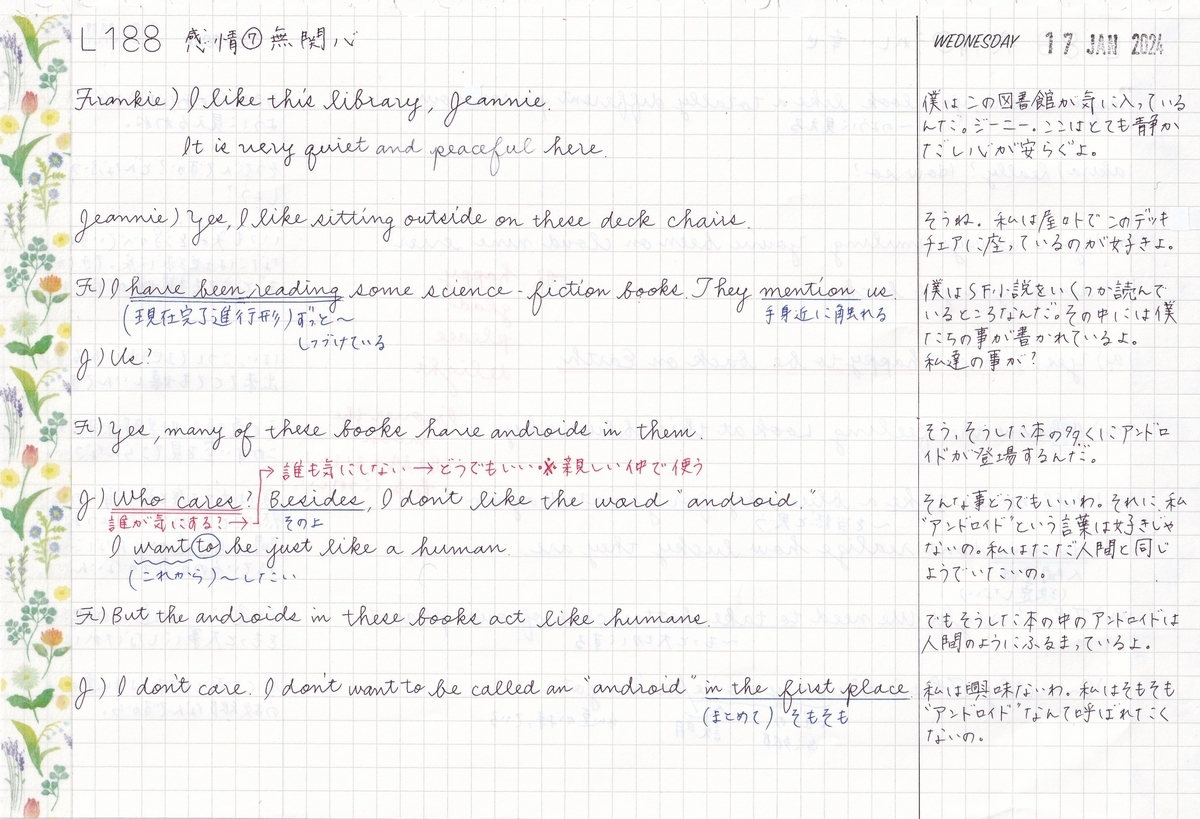 L188 感情⑦無関心
WEDNESDAY 17 JAN 2024
Frankie) I like this library, Jeannie.
It is very quiet and peaceful here.
僕はこの図書館が気に入っている
んだ。ジーニー。ここはとても静か
だし心が安らぐよ。
Jeannie) Yes, I like sitting outside on these deck chairs.
そうね。私は屋外でこのデッキ
チェアに座っているのが好きよ。
F) I have been reading some science-fiction books. They mention us.
(現在完了進行形) ずっと〜
しつづけている
手身近に触れる
僕はSF小説をいくつか読んで
いるところなんだ。その中には僕
たちの事が書かれているよ。
J) Us?
私達の事が?
F) Yes, many of these books have androids in them.
そう、そうした本の多くにアンドロ
イドが登場するんだ。
→誰も気にしない→どうでもいい ※親しい仲で使う
J) Who cares? Besides, I don't like the word "android."
誰が気にする?→
その上
I want to be just like a human.
(これから)〜したい
そんな事どうでもいいわ。それに、私
"アンドロイド"という言葉は好きじゃ
ないの。私はただ人間と同じ
ようでいたいの。
F) But the androids in these books act like humans.
でもそうした本の中のアンドロイドは
人間のようにふるまっているよ。
J) I don't care. I don't want to be called an "android" in the first place.
(まとめて) そもそも
私は興味ないわ。私はそもそも
"アンドロイド"なんて呼ばれたく
ないの。